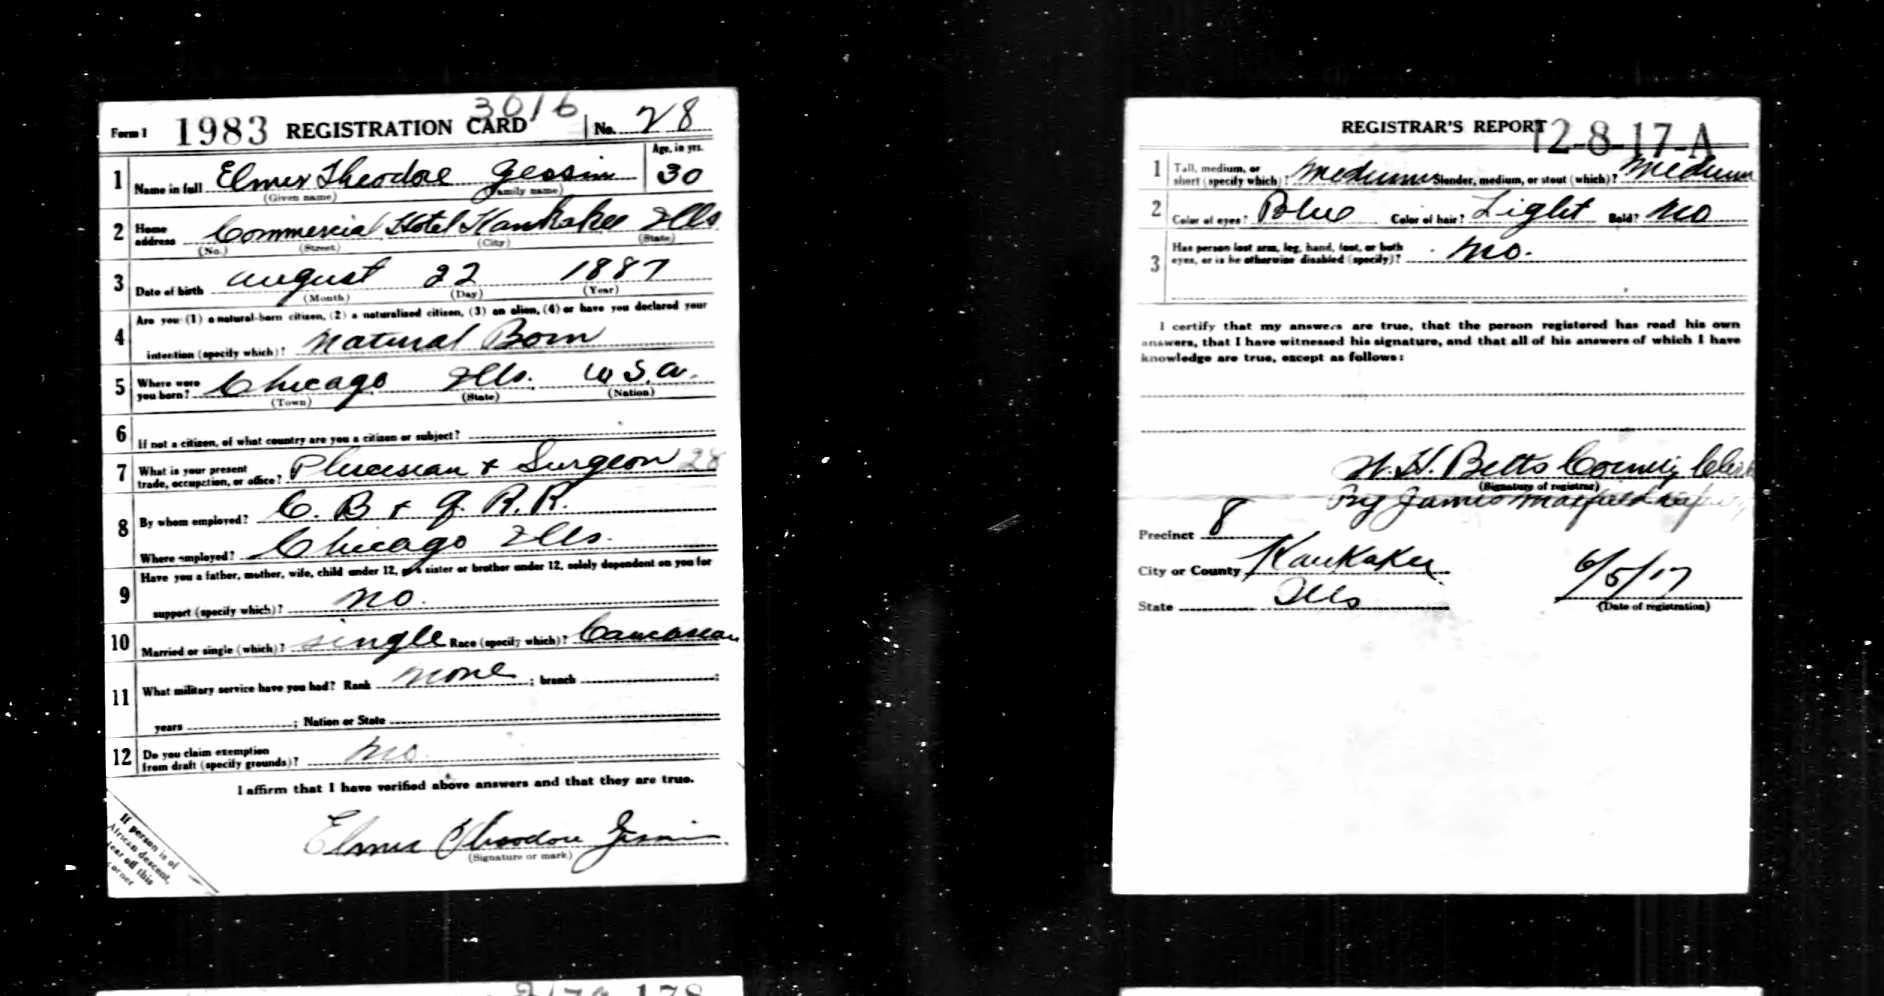 Form 1 1983 REGISTRATION CARD 3016 No. 28
Age, in yrs.
1 Name in full Elmer Theodore Gessin 30
(Given name) (Family name)
2 Home address Commercial Hotel Kankakee Ills
(No.) (Street) (City) (State)
3 Date of birth August 22 1887
(Month) (Day) (Year)
Are you (1) a natural-born citizen, (2) a naturalized citizen, (3) an alien, (4) or have you declared your
4 intention (specify which)? Natural Born
5 Where were you born? Chicago Ills. U.S.A.
(Town) (State) (Nation)
6 If not a citizen, of what country are you a citizen or subject?
7 What is your present
trade, occupation, or office? Phicisian & Surgeon 28
8 By whom employed? C. B & Q. R. R.
Where employed? Chicago Ills.
Have you a father, mother, wife, child under 12, or a sister or brother under 12, solely dependent on you for
9 support (specify which)? No.
10 Married or single (which)? single Race (specify which)? Caucasian
11 What military service have you had? Rank none ; branch ;
years ; Nation or State
12 Do you claim exemption
from draft (specify grounds)? No
I affirm that I have verified above answers and that they are true.
Elmer Theodore Gessin
(Signature or mark)
If person is of
African descent,
tear off this
corner
REGISTRAR'S REPORT 12-8-17-A
1 Tall, medium, or
short (specify which)? Medium Slender, medium, or stout (which)? Medium
2 Color of eyes? Blue Color of hair? Light Bald? No
3 Has person lost arm, leg, hand, foot, or both
eyes, or is he otherwise disabled (specify)? No.
I certify that my answers are true, that the person registered has read his own
answers, that I have witnessed his signature, and that all of his answers of which I have
knowledge are true, except as follows:
Betts County Clerk
(Signature of registrar)
By James
Precinct 8
City or County Kankakee 6/5/17
State Ills (Date of registration)
178